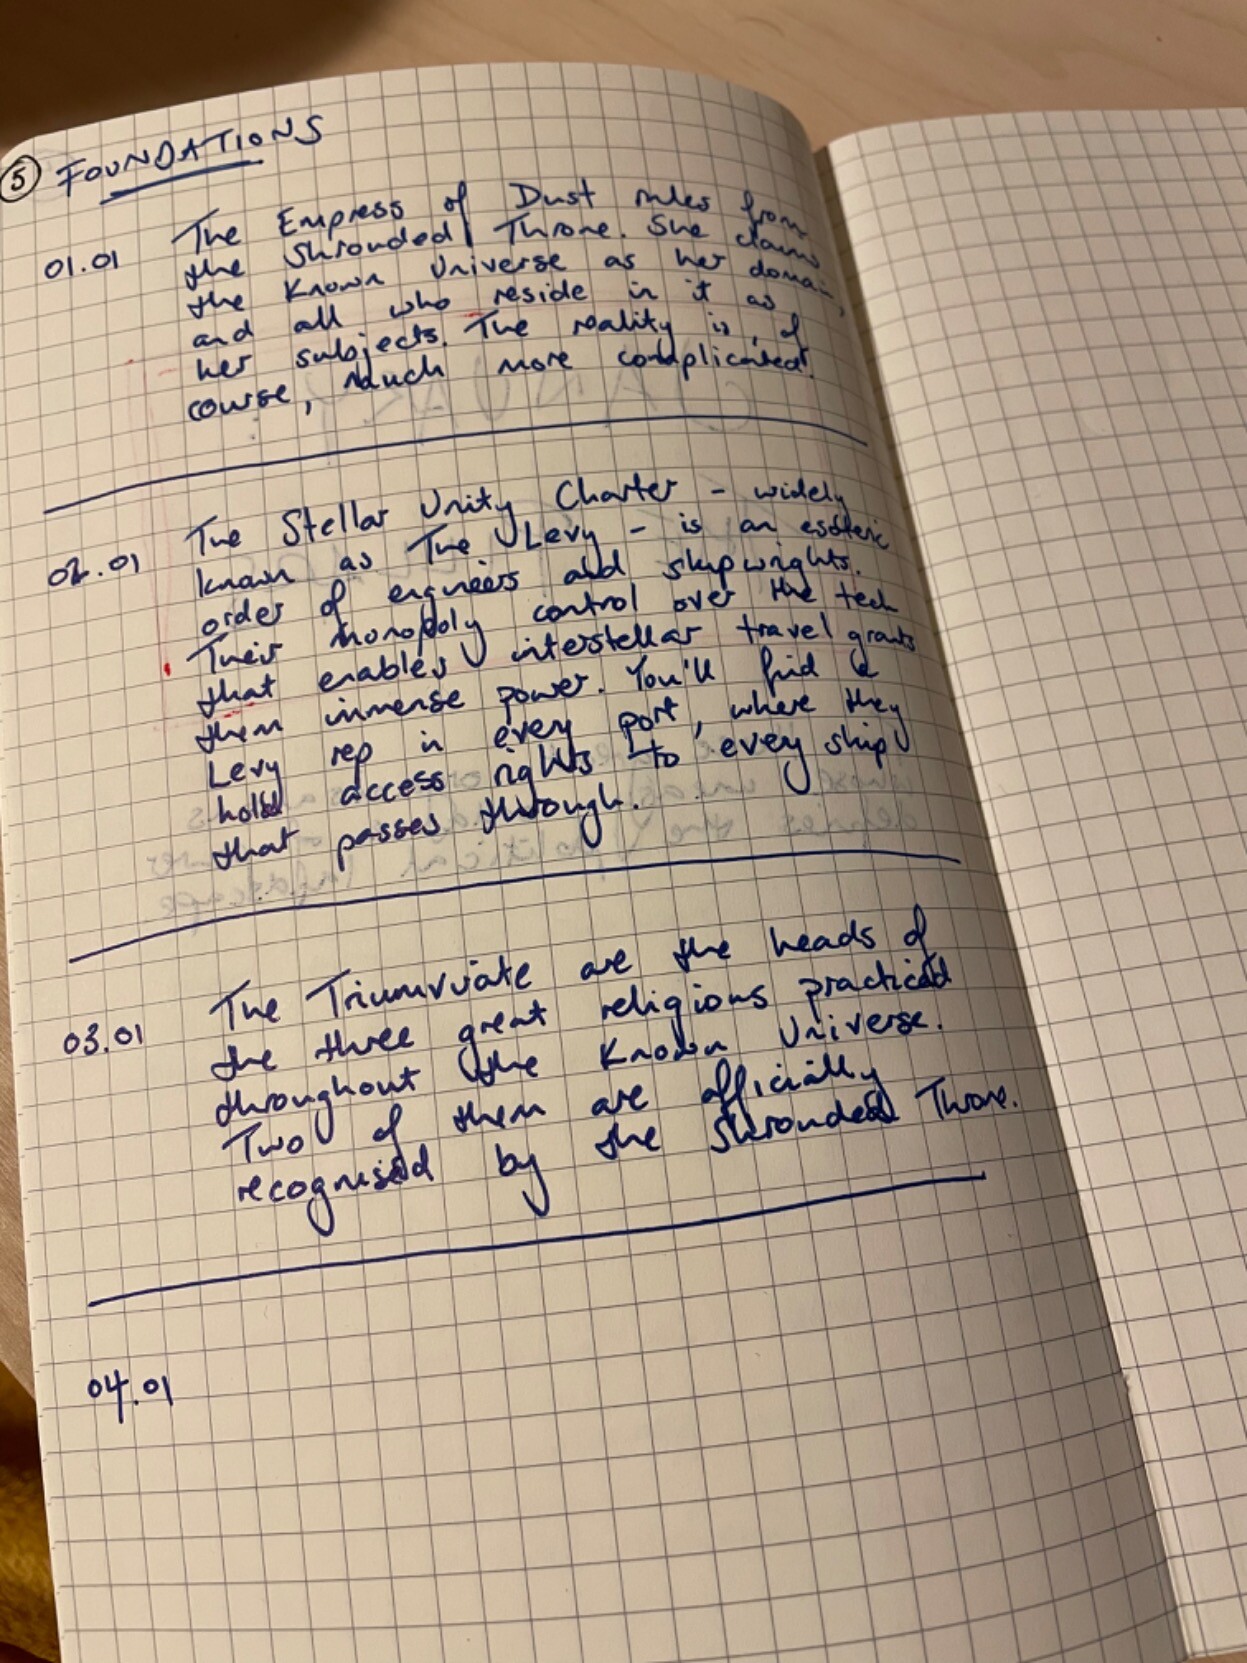 5 FOUNDATIONS
01.01 The Empress of Dust rules from
the Shrouded Throne. She claims
the Known Universe as her domain,
and all who reside in it as
her subjects. The reality is, of
course, much more complicated.
02.01 The Stellar Unity Charter - widely
known as The Levy - is an esoteric
order of engineers and shipwrights.
Their monopoly control over the tech
that enables interstellar travel grants
them immense power. You'll find a
Levy rep in every port, where they
hold access rights to every ship
that passes through.
03.01 The Triumvirate are the heads of
the three great religions practiced
throughout the Known Universe.
Two of them are officially
recognised by the Shrouded Throne.
04.01